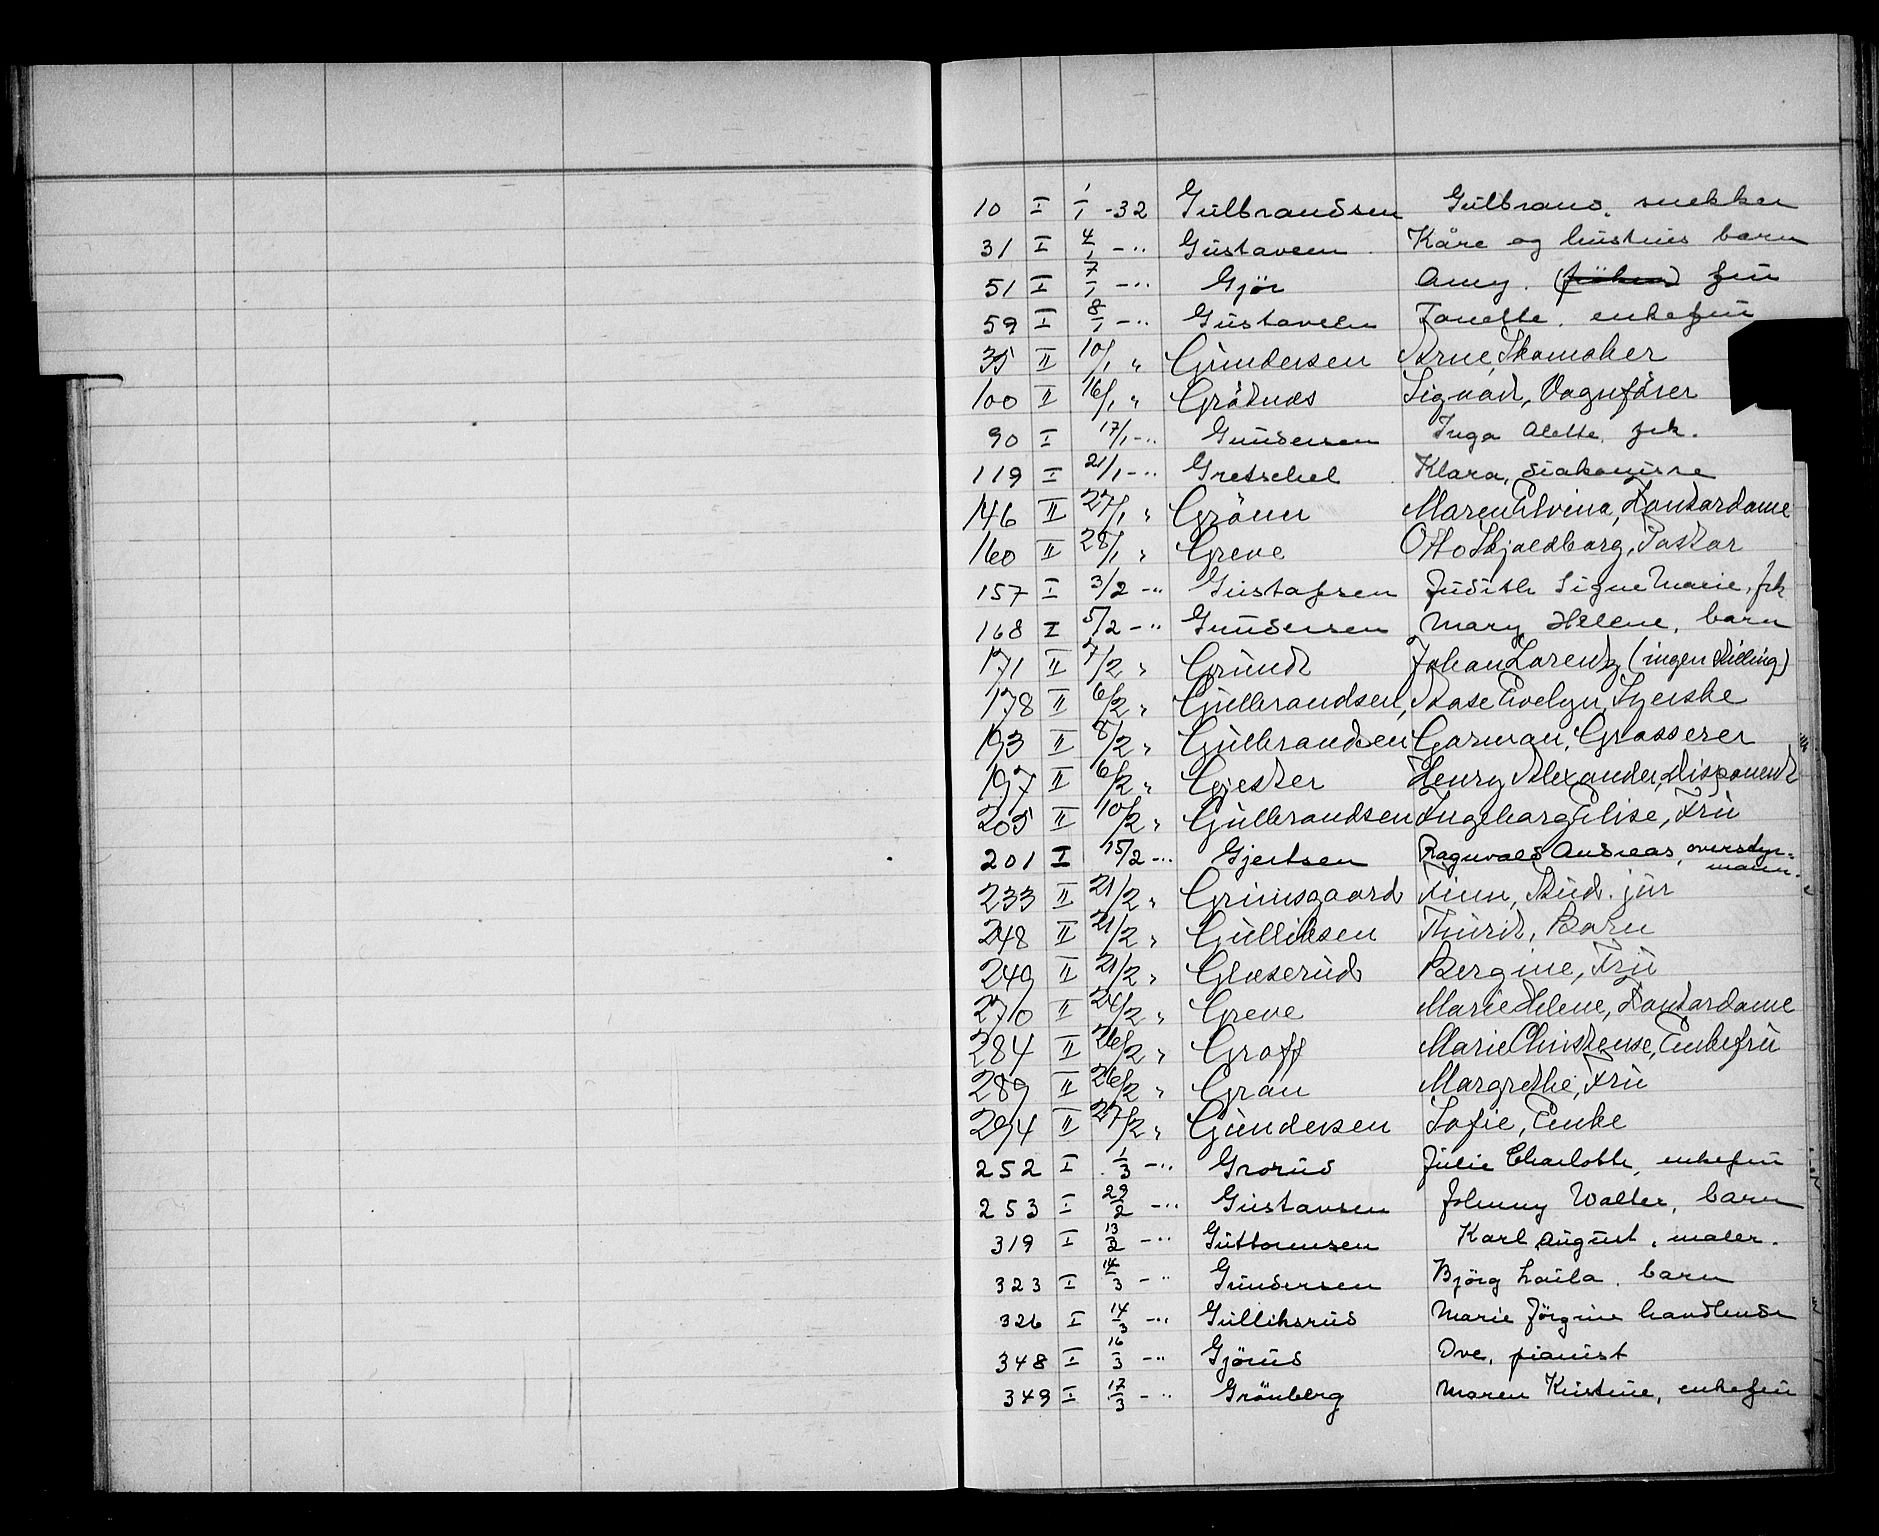 10 I 1/1 -32 Gulbrandsen Gulbrand. snekker
31 I 4/1 - " Gustavsen Kåre og hustrus barn
51 I 7/1 - " Gjör Anny. (fröken) fru
59 I 8/1 - " Gustavsen Janette. enkefru
35 II 10/1 " Gundersen Arne, Skomaker
100 II 16/1 " Grödnes Sigvart, Vognförer
90 I 17/1 - " Gundersen Inga Alette. frk.
119 I 21/1 - " Gretschel Klara, diakonisse
146 II 27/1 " Grönn Maren Elvina, Kontordame
160 II 28/1 " Greve Otto Skjoldborg, Pastor
157 I 3/2 - " Gustafsen Judith Signe Marie, frk
168 I 5/2 - " Gundersen Mary Helene, barn
171 II 7/2 " Grundt Johan Lorentz (ingen stilling)
178 II 6/2 " Gulbrandsen, Aase Evelyn, Syerske
193 II 8/2 " Gulbrandsen Gorman, Grosserer
197 II 6/2 " Gjester Henry Alexander, disponent
205 II 10/2 " Gulbrandsen Ingeborg Elise, Fru
201 I 15/2 - " Gjertsen Ragnvald Andreas, overstyr=
mann.
233 II 21/2 " Grimsgaard Finn, Stud. jur
248 II 21/2 " Gulliksen Thurid, Barn
249 II 21/2 " Gloserud Bergine, Fru
270 II 24/2 " Greve Marie Helene, Kontordame
284 II 26/2 " Groff Marie Christense, Enkefru
289 II 26/2 " Gran Margrethe, Fru
294 II 27/2 " Gundersen Sofie, Enke
252 I 1/3 - " Grorud Julie Charlotte, enkefru
253 I 29/2 - " Gustavsen Johnny Walter, barn
319 I 13/2 - " Guttormsen Karl August, maler.
323 I 14/3 - " Gundersen Björg Laila. barn
326 I 14/3 - " Gulliksrud Marie Jörgine handlende
348 I 16/3 - " Gjörud Ove, pianist
349 I 17/3 - " Grönberg Maren Kristine, enkefru